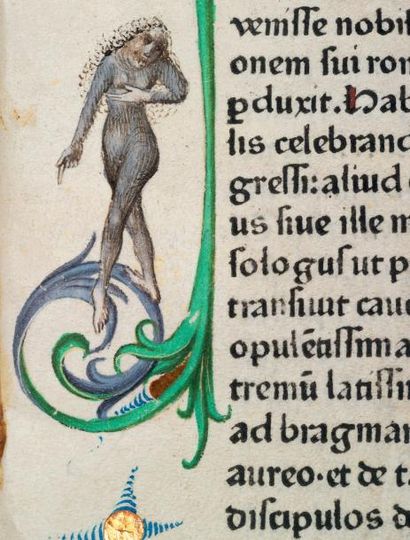 venisse nobi
onem sui ro
ꝑduxit. Hab
lis celebrand
gressi: aliud
us siue ille m
sologus ut p
transiuit cauc
opulētissima
tremū latissi
ad bragman
aureo·et de t
discipulos d